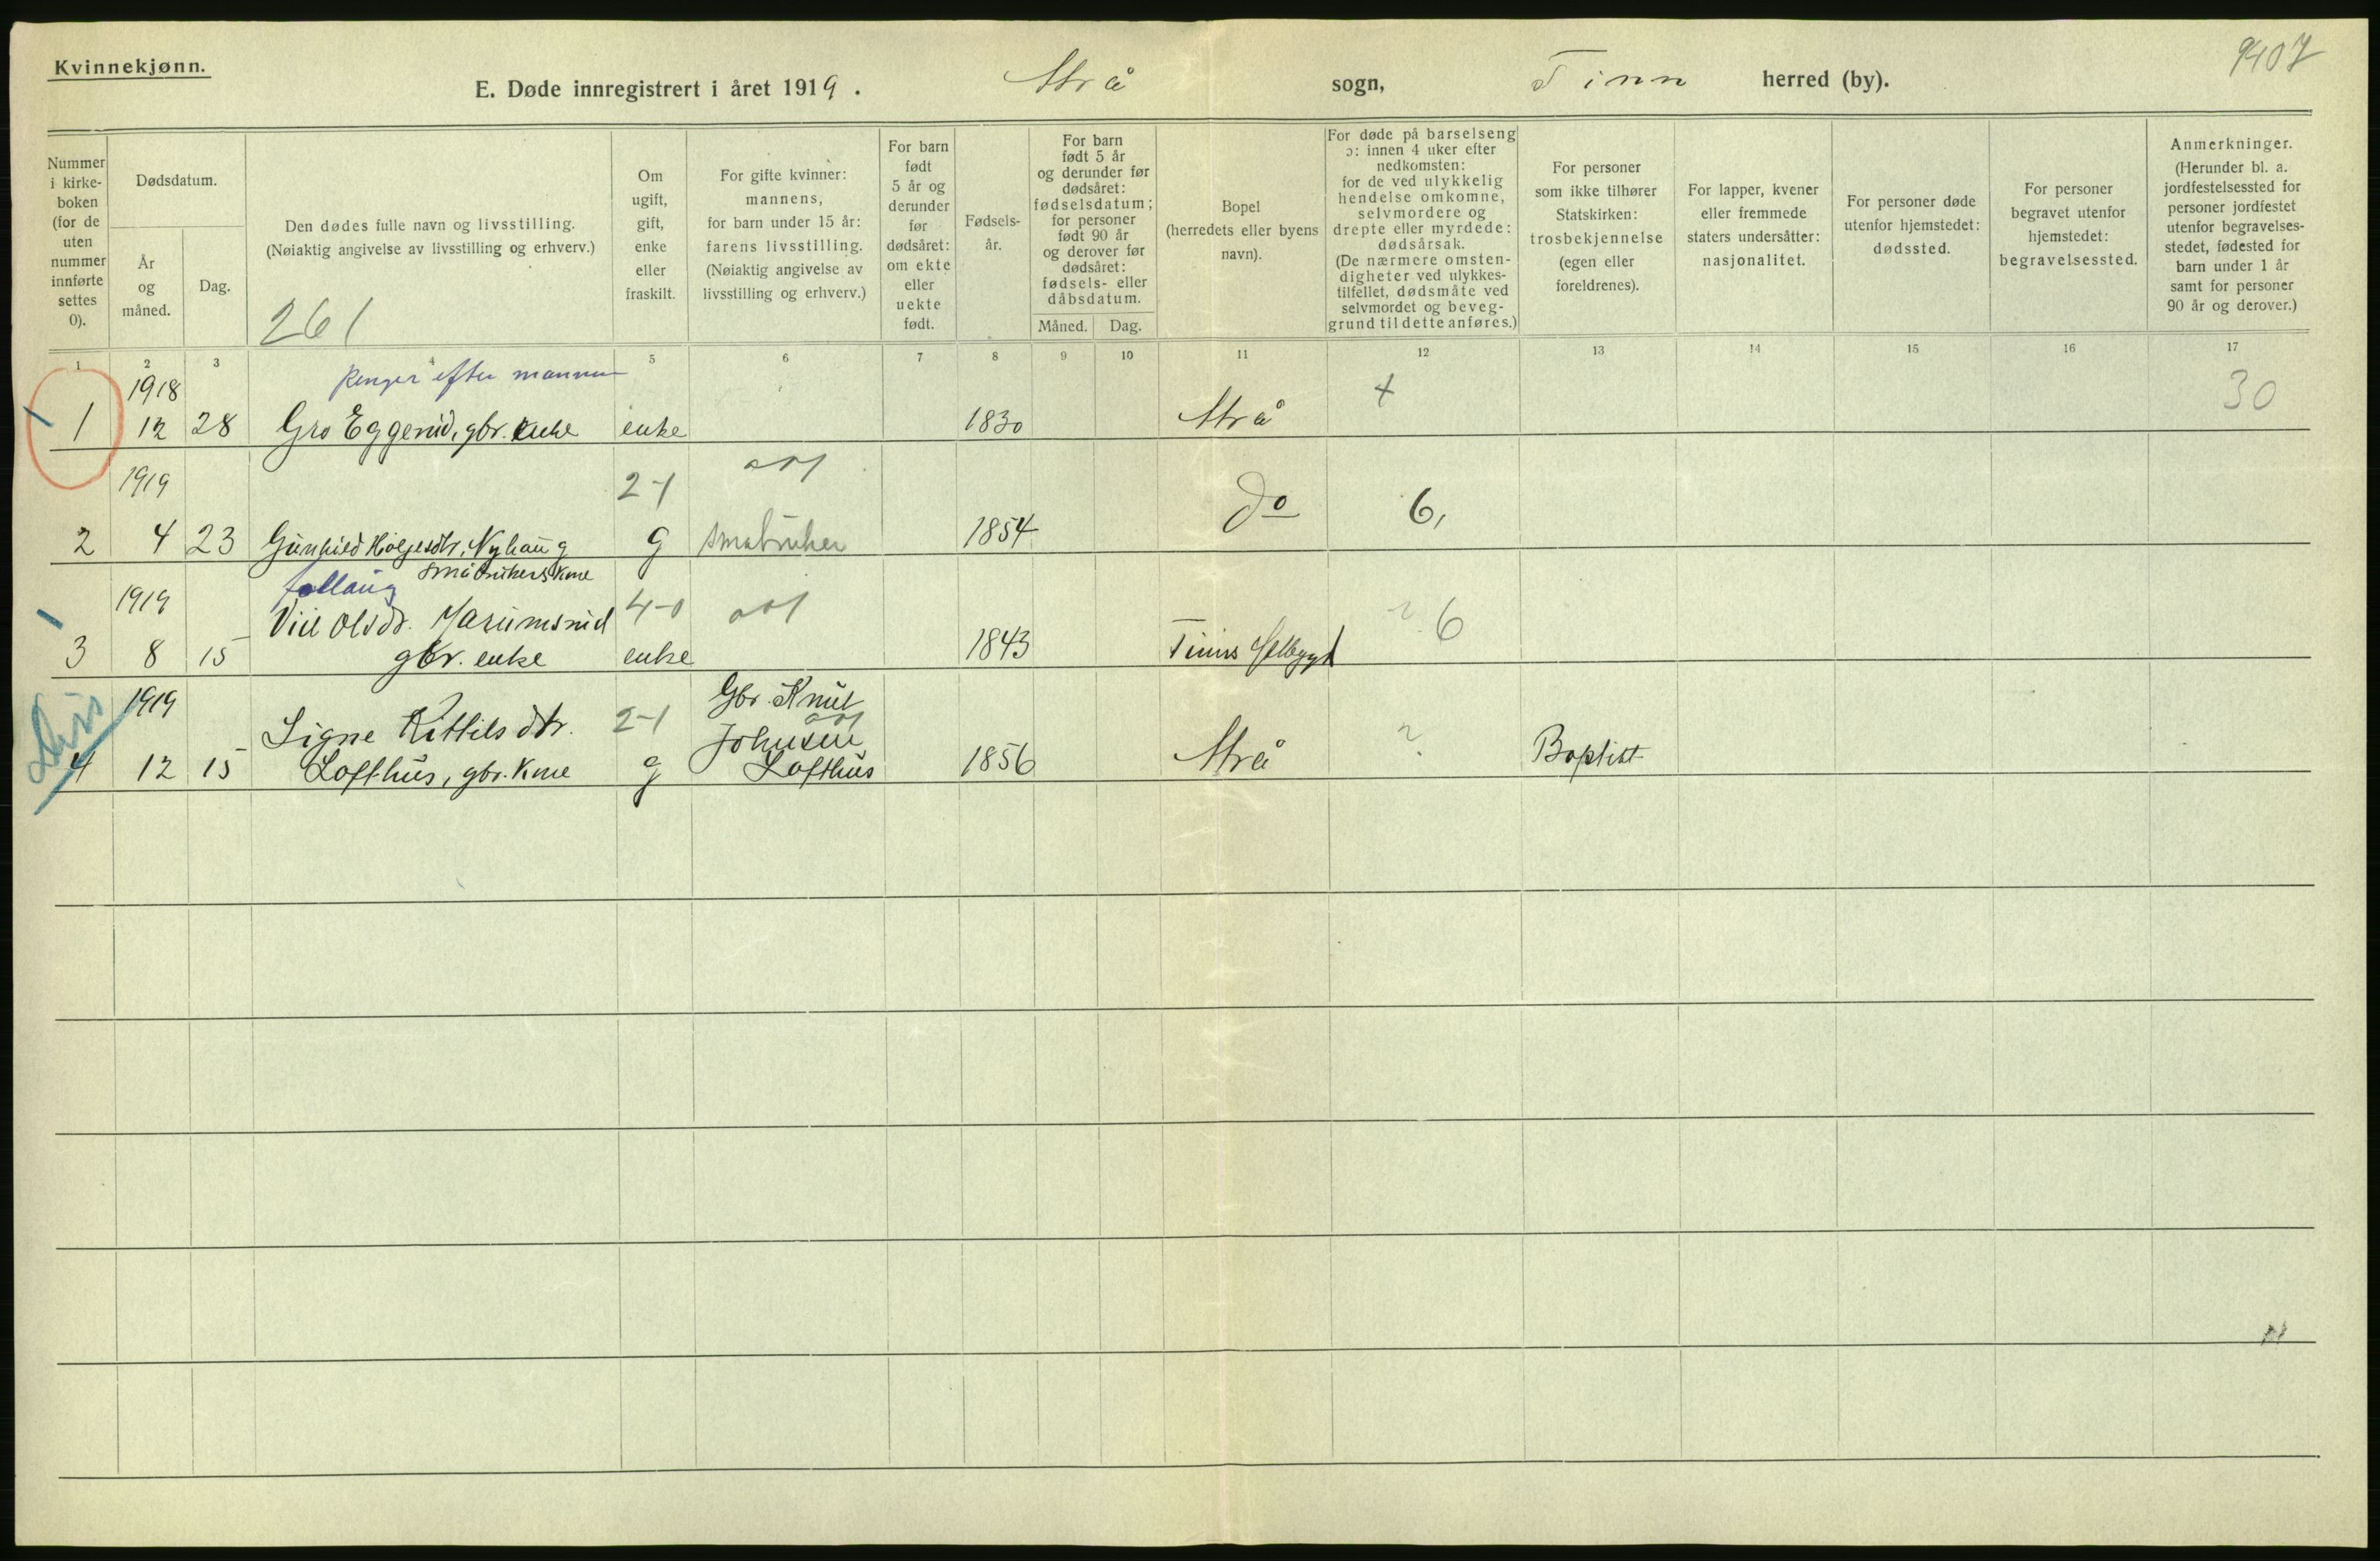 Kvinnekjønn.
9407
E. Døde innregistrert i året 1919. Atrå sogn, Tinn herred (by).
Nummer i kirke- boken (for de uten nummer innførte settes 0).
Dødsdatum.
År og måned.
Dag.
Den dødes fulle navn og livsstilling.
(Nøiaktig angivelse av livsstilling og erhverv.)
261
Om ugift, gift, enke eller fraskilt.
For gifte kvinner: mannens, for barn under 15 år: farens livsstilling.
(Nøiaktig angivelse av livsstilling og erhverv.)
For barn født 5 år og derunder før dødsåret: om ekte eller uekte født.
Fødsels- år.
For barn født 5 år og derunder før dødsåret: fødselsdatum; for personer født 90 år og derover før dødsåret: fødsels- eller dåbsdatum.
Måned. Dag.
Bopel (herredets eller byens navn).
For døde på barselseng ɔ: innen 4 uker efter nedkomsten: for de ved ulykkelig hendelse omkomne, selvmordere og drepte eller myrdede: dødsårsak.
(De nærmere omsten- digheter ved ulykkes- tilfellet, dødsmåte ved selvmordet og beveg- grund til dette anføres.)
For personer som ikke tilhører Statskirken: trosbekjennelse (egen eller foreldrenes).
For lapper, kvener eller fremmede staters undersåtter: nasjonalitet.
For personer døde utenfor hjemstedet: dødssted.
For personer begravet utenfor hjemstedet: begravelsessted.
Anmerkninger.
(Herunder bl. a. jordfestelsessted for personer jordfestet utenfor begravelses- stedet, fødested for barn under 1 år samt for personer 90 år og derover.)
1 2 3 4 5 6 7 8 9 10 11 12 13 14 15 16 17
1918 efter mannen + 30
1 12 28 Gro Eggerud, gbr. enke enke 1830 Atrå
1919 2-1 do 6,
2 4 23 Gunhild Holjesdtr. Nyhaug g småbruker 1854
småbrukers kne
1919 4-0 6
3 8 15 Olsdr. gbr. enke enke 1843 Tinns
1919 Signe Kittilsdtr. 2-1 Gbr. Knut Johnsen ?
4 12 15 Lofthus, gbr. kne g Lofthus 1856 Atrå Baptist